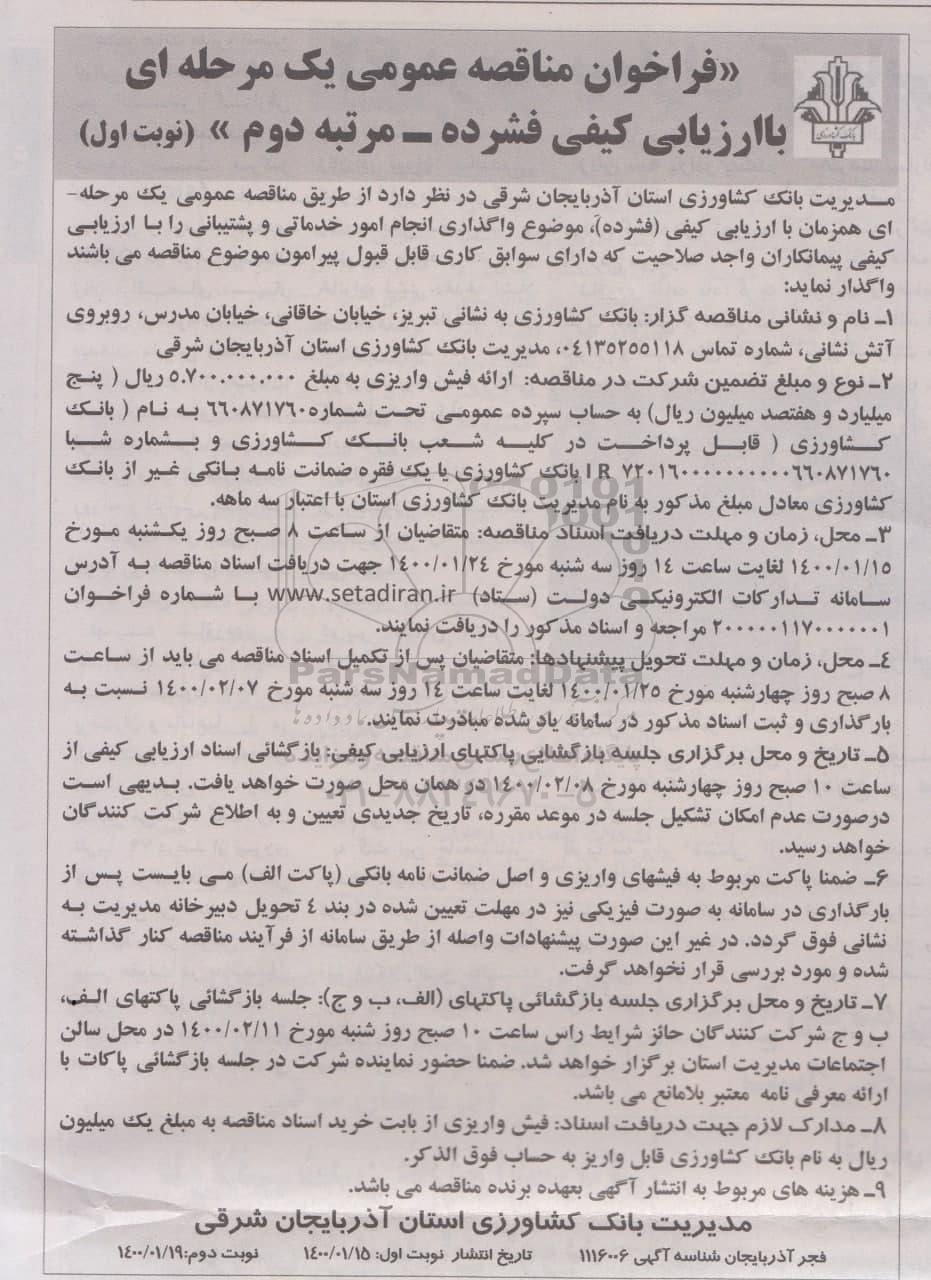 «فراخوان مناقصه عمومی یک مرحله ای
باارزیابی کیفی فشرده ـ مرتبه دوم » (نوبت اول)
بانک کشاورزی
مـدیریت بانک کشاورزی استان آذربایجان شرقی در نظر دارد از طریق مناقصه عمومی یک مرحله-
ای همزمان با ارزیابی کیفی (فشرده)، موضوع واگذاری انجام امور خدماتی و پشتیبانی را بـا ارزیابـی
کیفی پیمانکاران واجد صلاحیت که دارای سوابق کاری قابل قبول پیرامون موضوع مناقصه می باشند
واگذار نماید:
۱ـ نام و نشانی مناقصه گزار: بانک کشاورزی به نشانی تبریز، خیابان خاقانی، خیابان مدرس، روبروی
آتش نشانی، شماره تماس ۰۴۱۳۵۲۵۵۱۱۸، مدیریت بانک کشاورزی استان آذربایجان شرقی
۲ـ نوع و مبلغ تضمین شرکت در مناقصه: ارائه فیش واریزی به مبلغ ۵.۷۰۰.۰۰۰.۰۰۰ ریال ( پنـج
میلیارد و هفتصد میلیون ریال) به حساب سپرده عمومـی تحـت شماره۶۶۰۸۷۱۷۶۰ بـه نـام ( بانـک
کـشاورزی ( قابـل پرداخـت در کلیـه شـعب بانـک کـشاورزی و بـشماره شـبا
IR ۷۲۰۱۶۰۰۰۰۰۰۰۰۰۰۶۶۰۸۷۱۷۶۰ بانک کشاورزی یا یک فقره ضمانت نامه بـانکی غیـر از بانـک
کشاورزی معادل مبلغ مذکور به نام مدیریت بانک کشاورزی استان با اعتبار سه ماهه.
۳ـ محل، زمان و مهلت دریافت اسناد مناقصه: متقاضیان از سـاعت ۸ صـبح روز یکـشنبه مـورخ
۱۴۰۰/۰۱/۱۵ لغایت ساعت ۱۴ روز سه شنبه مورخ ۱۴۰۰/۰۱/۲۴ جهت دریافت اسناد مناقصه بـه آدرس
سـامانه تـدارکات الکترونیکـی دولـت (سـتاد) www.setadiran.ir بـا شـماره فراخـوان
۲۰۰۰۰۰۱۱۷۰۰۰۰۰۰۱ مراجعه و اسناد مذکور را دریافت نمایند.
۴ـ محل، زمان و مهلت تحویل پیشنهادها: متقاضیان پس از تکمیل اسناد مناقصه می باید از سـاعـت
۸ صبح روز چهارشنبه مورخ ۱۴۰۰/۰۱/۲۵ لغایت ساعت ۱۴ روز سه شنبه مورخ ۱۴۰۰/۰۲/۰۷ نسبت به
بارگذاری و ثبت اسناد مذکور در سامانه یاد شده مبادرت نمایند.
۵ـ تاریخ و محل برگزاری جلسه بازگشایی پاکتهای ارزیابی کیفی: بازگشائی اسناد ارزیابی کیفی از
ساعت ۱۰ صبح روز چهارشنبه مورخ ۱۴۰۰/۰۲/۰۸ در همان محل صورت خواهد یافت. بـدیهی اسـت
درصورت عدم امکان تشکیل جلسه در موعد مقرره، تاریخ جدیدی تعیین و به اطلاع شرکت کنندگان
خواهد رسید.
۶ـ ضمنا پاکت مربوط به فیشهای واریزی و اصل ضمانت نامه بانکی (پاکت الف) مـی بایـست پـس از
بارگذاری در سامانه به صورت فیزیکی نیز در مهلت تعیین شده در بند ۴ تحویل دبیرخانه مدیریت بـه
نشانی فوق گردد. در غیر این صورت پیشنهادات واصله از طریق سامانه از فرآیند مناقصه کنار گذاشته
شده و مورد بررسی قرار نخواهد گرفت.
۷ـ تاریخ و محل برگزاری جلسه بازگشائی پاکتهای (الف، ب و ج): جلسه بازگشائی پاکتهای الـف،
ب و ج شرکت کنندگان حائز شرایط راس ساعت ۱۰ صبح روز شنبه مورخ ۱۴۰۰/۰۲/۱۱ در محل سالن
اجتماعات مدیریت استان برگزار خواهد شد. ضمنا حضور نماینده شرکت در جلسه بازگشائی پاکات با
ارائه معرفی نامه معتبر بلامانع می باشد.
۸ـ مدارک لازم جهت دریافت اسناد: فیش واریزی از بابت خرید اسناد مناقصه به مبلغ یک میلیون
ریال به نام بانک کشاورزی قابل واریز به حساب فوق الذکر.
۹ـ هزینه های مربوط به انتشار آگهی بعهده برنده مناقصه می باشد.
مدیریت بانک کشاورزی استان آذربایجان شرقی
فجر آذربایجان شناسه آگهی ۱۱۱۶۰۰۶ تاریخ انتشار نوبت اول: ۱۴۰۰/۰۱/۱۵ نوبت دوم:۱۴۰۰/۰۱/۱۹
ParsNamadData